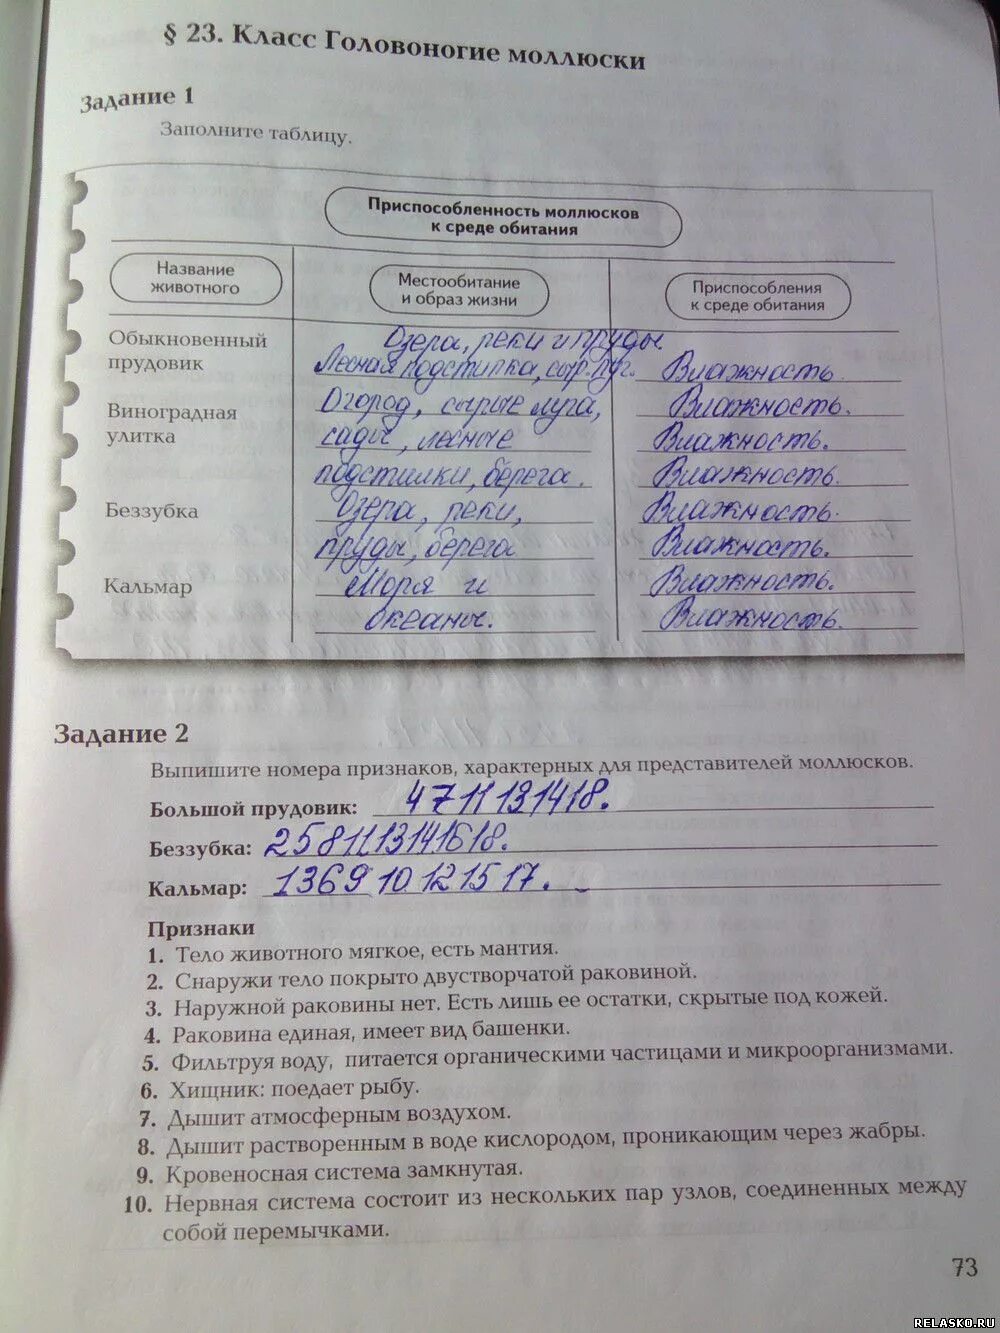 § 23. Класс Головоногие моллюски
Задание 1
Заполните таблицу.
Приспособленность моллюсков
к среде обитания
Название
животного
Местообитание
и образ жизни
Приспособления
к среде обитания
Обыкновенный
прудовик
Озера, реки и пруды
Лесная подстилка, сыр. луг. Влажность.
Виноградная
улитка
Огород, сырые луга, Влажность.
сады, лесные Влажность.
подстилки, берега. Влажность.
Беззубка
Озера, реки, Влажность.
пруды, берега Влажность.
Кальмар
Моря и Влажность.
океаны. Влажность.
Задание 2
Выпишите номера признаков, характерных для представителей моллюсков.
Большой прудовик: 4 7 11 13 14 18.
Беззубка: 2 5 8 11 13 14 16 18.
Кальмар: 1 3 6 9 10 12 15 17.
Признаки
1. Тело животного мягкое, есть мантия.
2. Снаружи тело покрыто двустворчатой раковиной.
3. Наружной раковины нет. Есть лишь ее остатки, скрытые под кожей.
4. Раковина единая, имеет вид башенки.
5. Фильтруя воду, питается органическими частицами и микроорганизмами.
6. Хищник: поедает рыбу.
7. Дышит атмосферным воздухом.
8. Дышит растворенным в воде кислородом, проникающим через жабры.
9. Кровеносная система замкнутая.
10. Нервная система состоит из нескольких пар узлов, соединенных между
собой перемычками.
73
RELASKO.RU